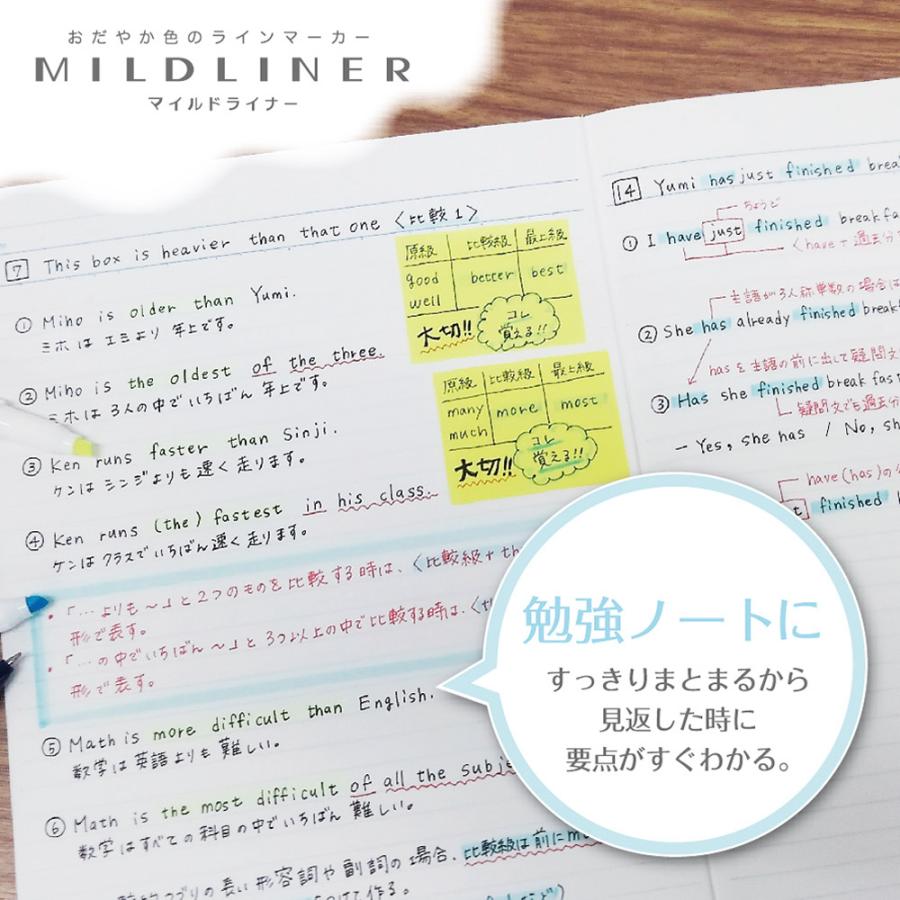 おだやか色のラインマーカー
MILDLINER
マイルドライナー
7 This box is heavier than that one 〈比較1〉
① Miho is older than Yumi.
ミホは エミより 年上です。
② Miho is the oldest of the three.
ミホは 3人の中でいちばん 年上です。
③ Ken runs faster than Sinji.
ケンは シンジよりも 速く 走ります。
④ Ken runs (the) fastest in his class.
ケンは クラスでいちばん 速く 走ります。
・「…よりも〜」と2つのものを比較する時は、〈比較級+th
形で表す。
・「…の中でいちばん〜」と3つ以上の中で比較する時は、〈th
形で表す。
⑤ Math is more difficult than English.
数学は英語よりも 難しい。
⑥ Math is the most difficult of all the subje
数学はすべての科目の中でいちばん 難しい。
つづりの長い形容詞や副詞の場合、比較級は前にm
つけて作る。
原級 比較級 最上級
good better best
well
大切!! コレ
覚える!!
原級 比較級 最上級
many more most
much
大切!! コレ
覚える!!
14 Yumi has just finished brea
ちょうど
① I have just finished breakfa
〈have+過去分
主語が3人称単数の場合は
② She has already finished break
hasを主語の前に出して疑問文
③ Has she finished breakfast
疑問文でも過去分
- Yes, she has / No, sh
have(has)の
finished
勉強ノートに
すっきりまとまるから
見返した時に
要点がすぐわかる。